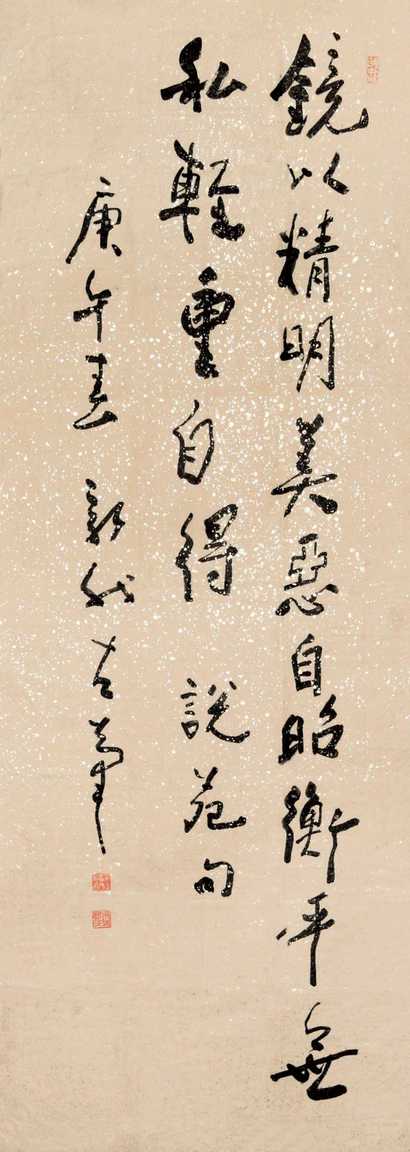 鏡以精明美惡自昭衡平無
私輕重自得 說苑句
庚午春 新我左筆